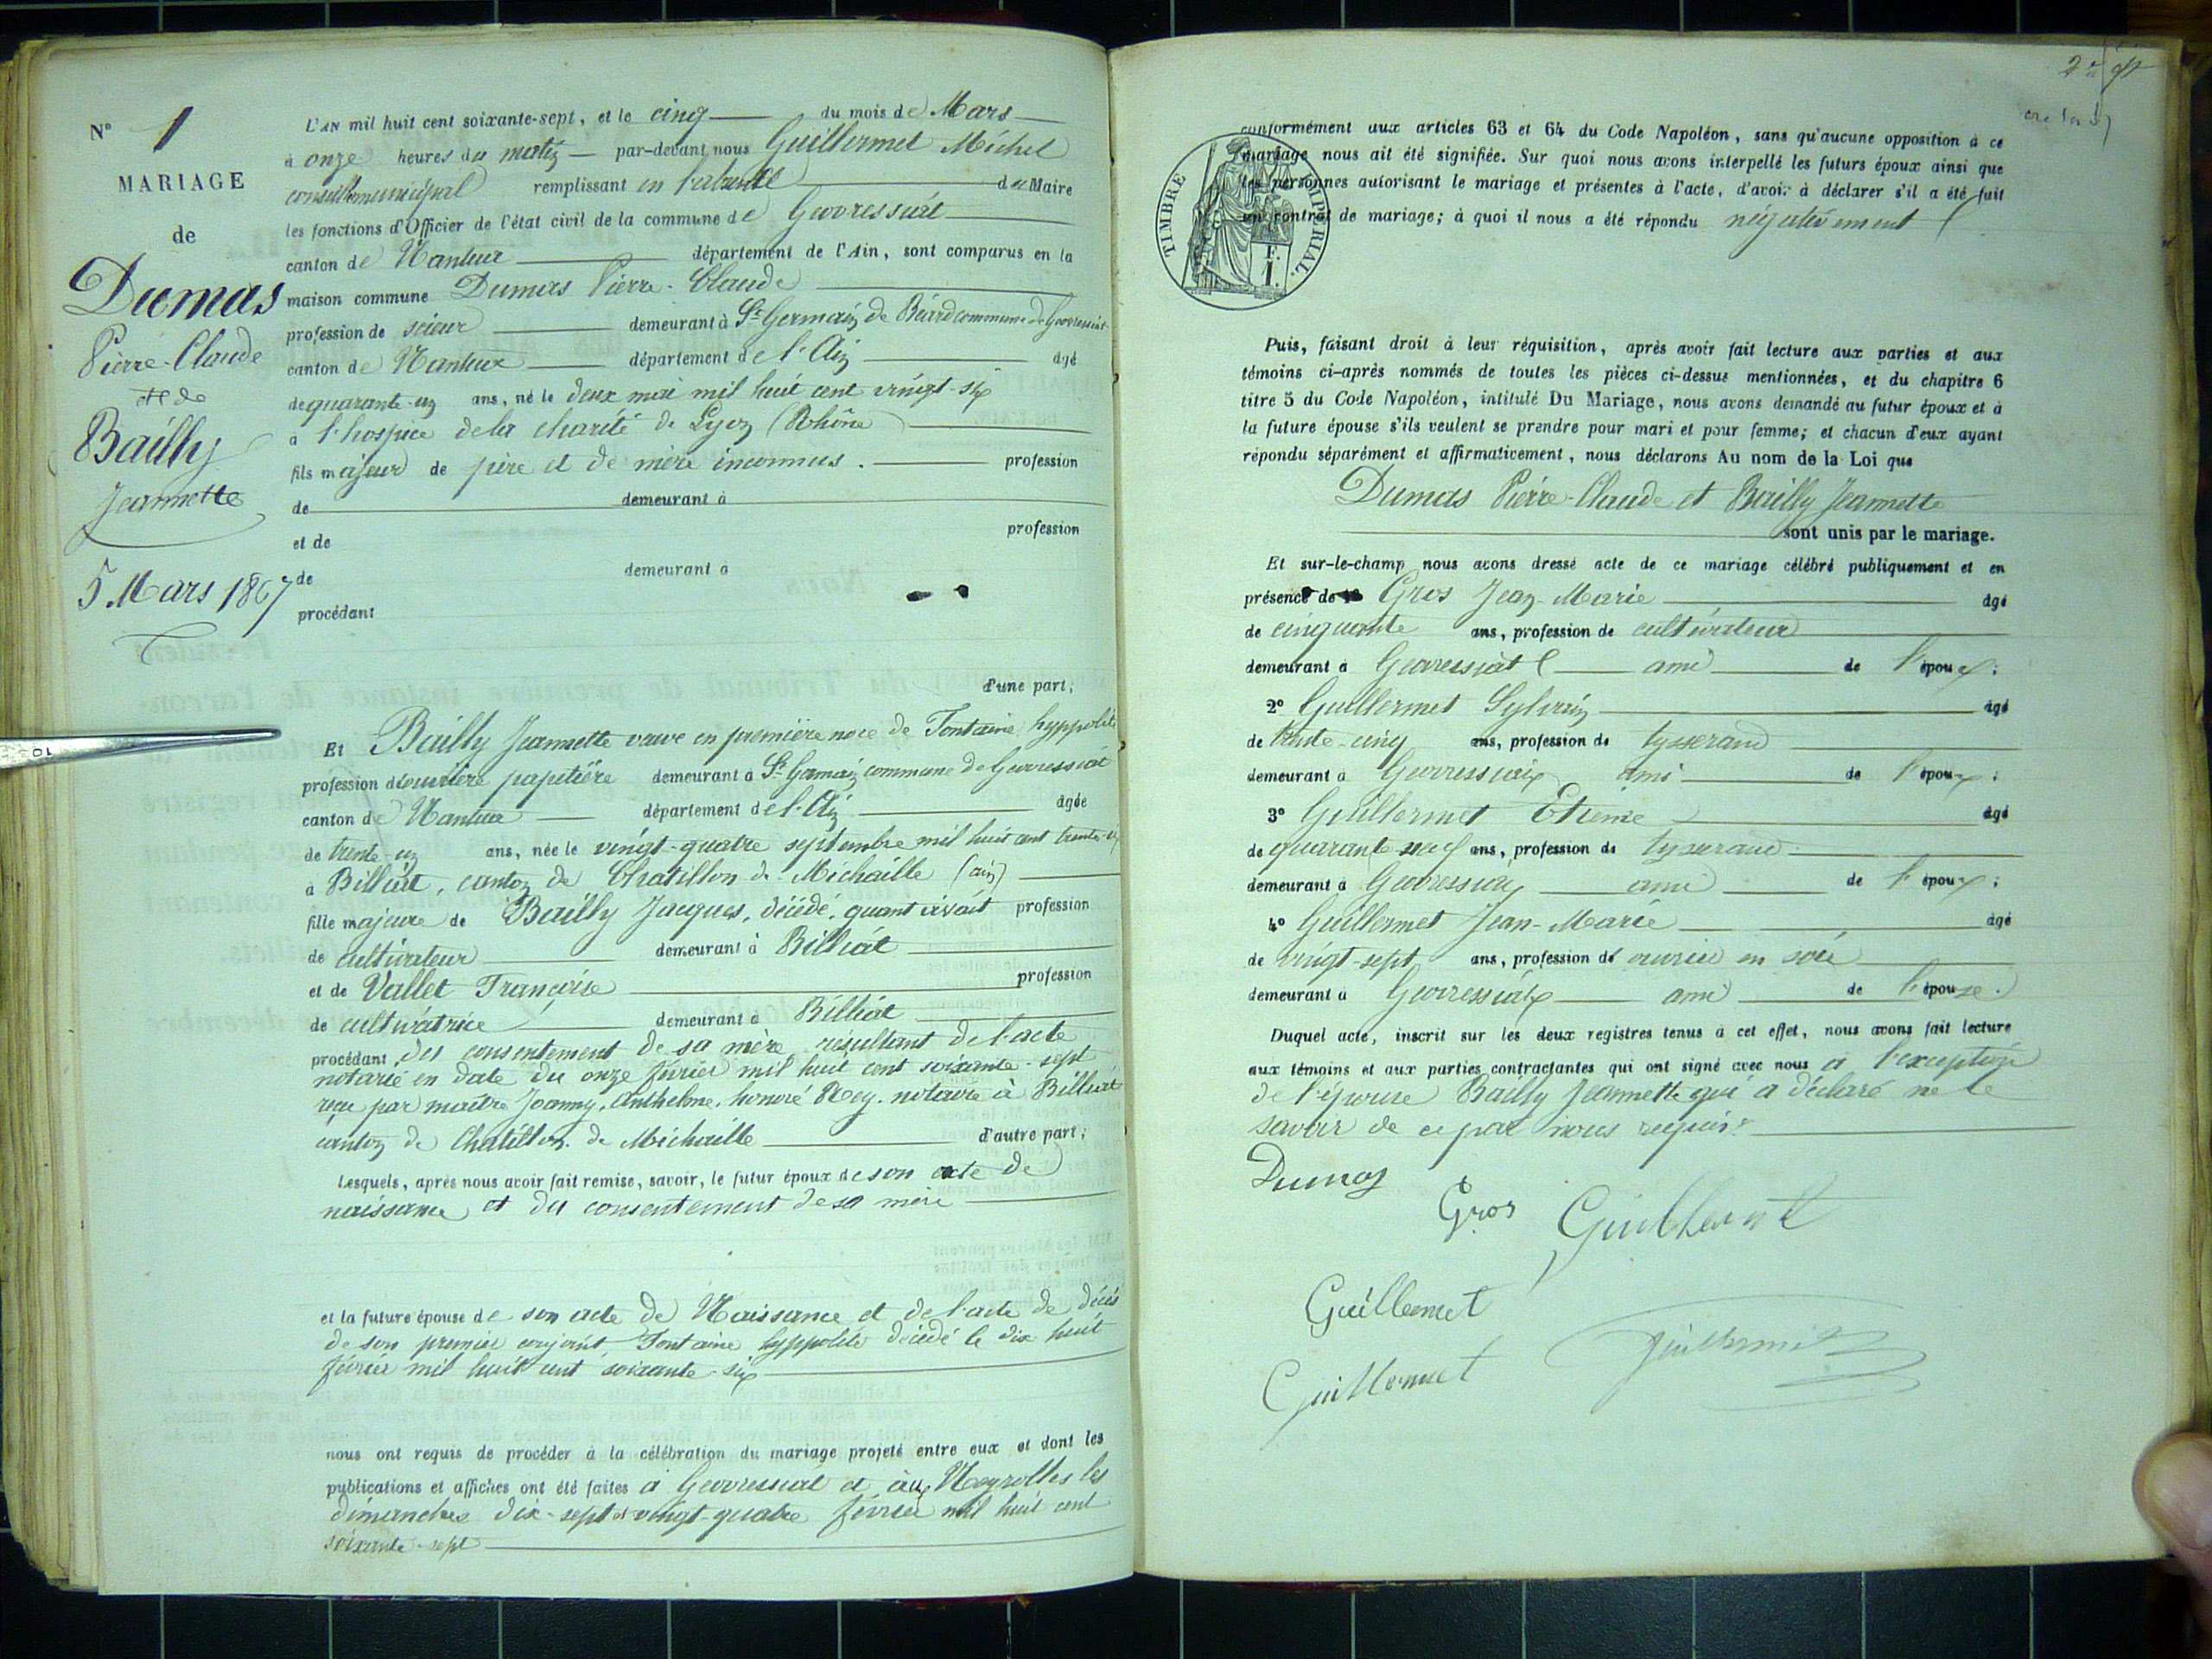 N° 1
MARIAGE
de
Dumas
Pierre-Claude
et de
Bailly
Jeannette
5 Mars 1867
L'AN mil huit cent soixante-sept, et le cinq du mois de Mars
à onze heures du matin par-devant nous Guillermet Michel
conseiller municipal remplissant en l'absence du Maire
les fonctions d'Officier de l'état civil de la commune de Gevressiat
canton de Nantua département de l'Ain, sont comparus en la
maison commune Dumas Pierre-Claude
profession de scieur demeurant à St Germain de Béard commune de Gevressiat
canton de Nantua département de l'Ain âgé
de quarante-un ans, né le deux mai mil huit cent vingt-six
à l'hospice de la charité de Lyon (Rhône)
fils majeur de père et de mère inconnus. profession
de demeurant à
et de profession
de demeurant à
procédant
d'une part;
Et Bailly Jeannette veuve en première noce de Fontaine hyppolite
profession d'ouvrière papetière demeurant à St Germain commune de Gevressiat
canton de Nantua département de l'Ain âgée
de trente-un ans, née le vingt-quatre septembre mil huit cent trente-
à Billiat, canton de Chatillon de Michaille (ain)
fille majeure de Bailly Jacques, décédé, quant vivait profession
de cultivateur demeurant à Billiat
et de Vallet Françoise profession
de cultivatrice demeurant à Billiat
procédant du consentement de sa mère résultant de l'acte
notarié en date du onze févrièr mil huit cent soixante-sept
reçu par maître Joanny, Anthelme, honoré Rey, notaire à Billiat
canton de Chatillon de Michaille d'autre part;
Lesquels, après nous avoir fait remise, savoir, le futur époux de son acte de
naissance et du consentement de sa mère
et la future épouse de son acte de Naissance et de l'acte de décès
de son premier conjoint Fontaine hyppolite décédé le dix huit
févrièr mil huit cent soixante-six
nous ont requis de procéder à la célébration du mariage projeté entre eux et dont les
publications et affiches ont été faites à Gevressiat et aux Neyrolles les
dimanches dix-sept et vingt-quatre févrièr mil huit cent
soixante-sept
TIMBRE IMPÉRIAL.
F.
1.
conformément aux articles 63 et 64 du Code Napoléon, sans qu'aucune opposition à ce
mariage nous ait été signifiée. Sur quoi nous avons interpellé les futurs époux ainsi que
les personnes autorisant le mariage et présentes à l'acte, d'avoir à déclarer s'il a été fait
un contrat de mariage; à quoi il nous a été répondu négativement
Puis, faisant droit à leur réquisition, après avoir fait lecture aux parties et aux
témoins ci-après nommés de toutes les pièces ci-dessus mentionnées, et du chapitre 6
titre 5 du Code Napoléon, intitulé Du Mariage, nous avons demandé au futur époux et à
la future épouse s'ils veulent se prendre pour mari et pour femme; et chacun d'eux ayant
répondu séparément et affirmativement, nous déclarons Au nom de la Loi que
Dumas Pierre-Claude et Bailly Jeannette
sont unis par le mariage.
Et sur-le-champ nous avons dressé acte de ce mariage célébré publiquement et en
présence de Gros Jean-Marie âgé
de cinquante ans, profession de cultivateur
demeurant à Gevressiat ami de l'époux;
2° Guillermet Sylvain âgé
de trente-cinq ans, profession de tysserand
demeurant à Gevressiat ami de l'époux;
3° Guillermet Etiene âgé
de quarante-neuf ans, profession de tysserand
demeurant à Gevressiat ami de l'époux;
4° Guillermet Jean-Marie âgé
de vingt-sept ans, profession de ouvrier en soie
demeurant à Gevressiat ami de l'épouse.
Duquel acte, inscrit sur les deux registres tenus à cet effet, nous avons fait lecture
aux témoins et aux parties contractantes qui ont signé avec nous à l'exception
de l'épouse Bailly Jeannette qui a déclaré ne le
savoir de ce par nous requise
Dumas
Gros Guillermet
Guillermet
Guillermet Guillermet